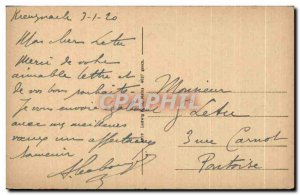 Kreuznach 3-1-20
Mon cher Letu
Merci de votre
aimable lettre et
de vos bons souhaits
Je vous envoie également
avec mes meilleurs
vœux un affectueux
souvenir
Monsieur
J Letu
3 rue Carnot
Pontoise
CPAPHIL.COM